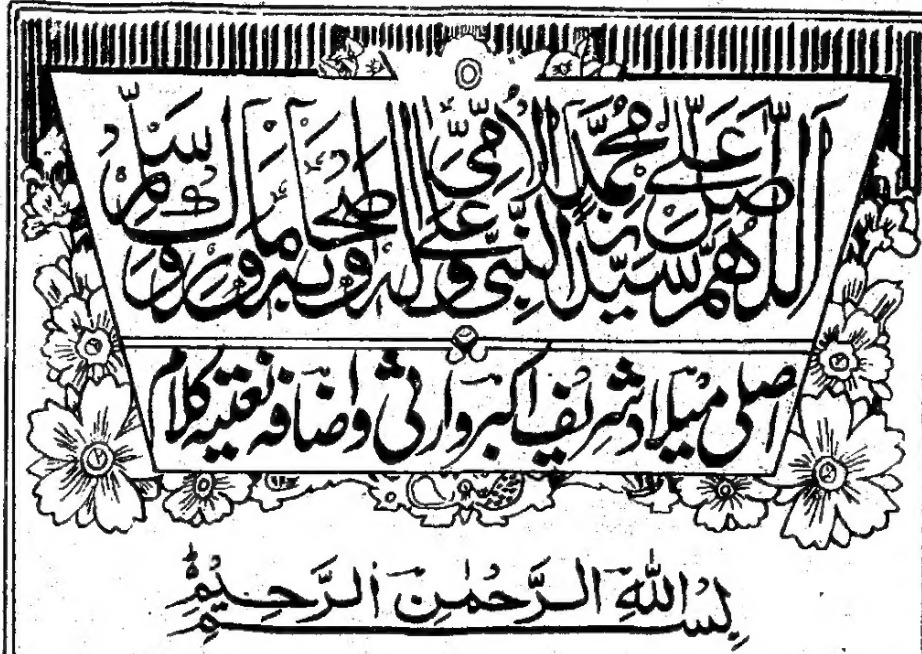 اَللّٰهُمَّ صَلِّ عَلٰى سَيِّدِنَا مُحَمَّدِ نِ النَّبِىِّ الْاُمِّىِّ وَعَلٰى اٰلِهٖ وَاَصْحَابِهٖ وَبَارِكْ وَسَلِّمْ
اصلی میلاد شریف اکبر وارثی و اضافہ نعتیہ کلام
بِسْمِ اللّٰهِ الرَّحْمٰنِ الرَّحِيْمِ